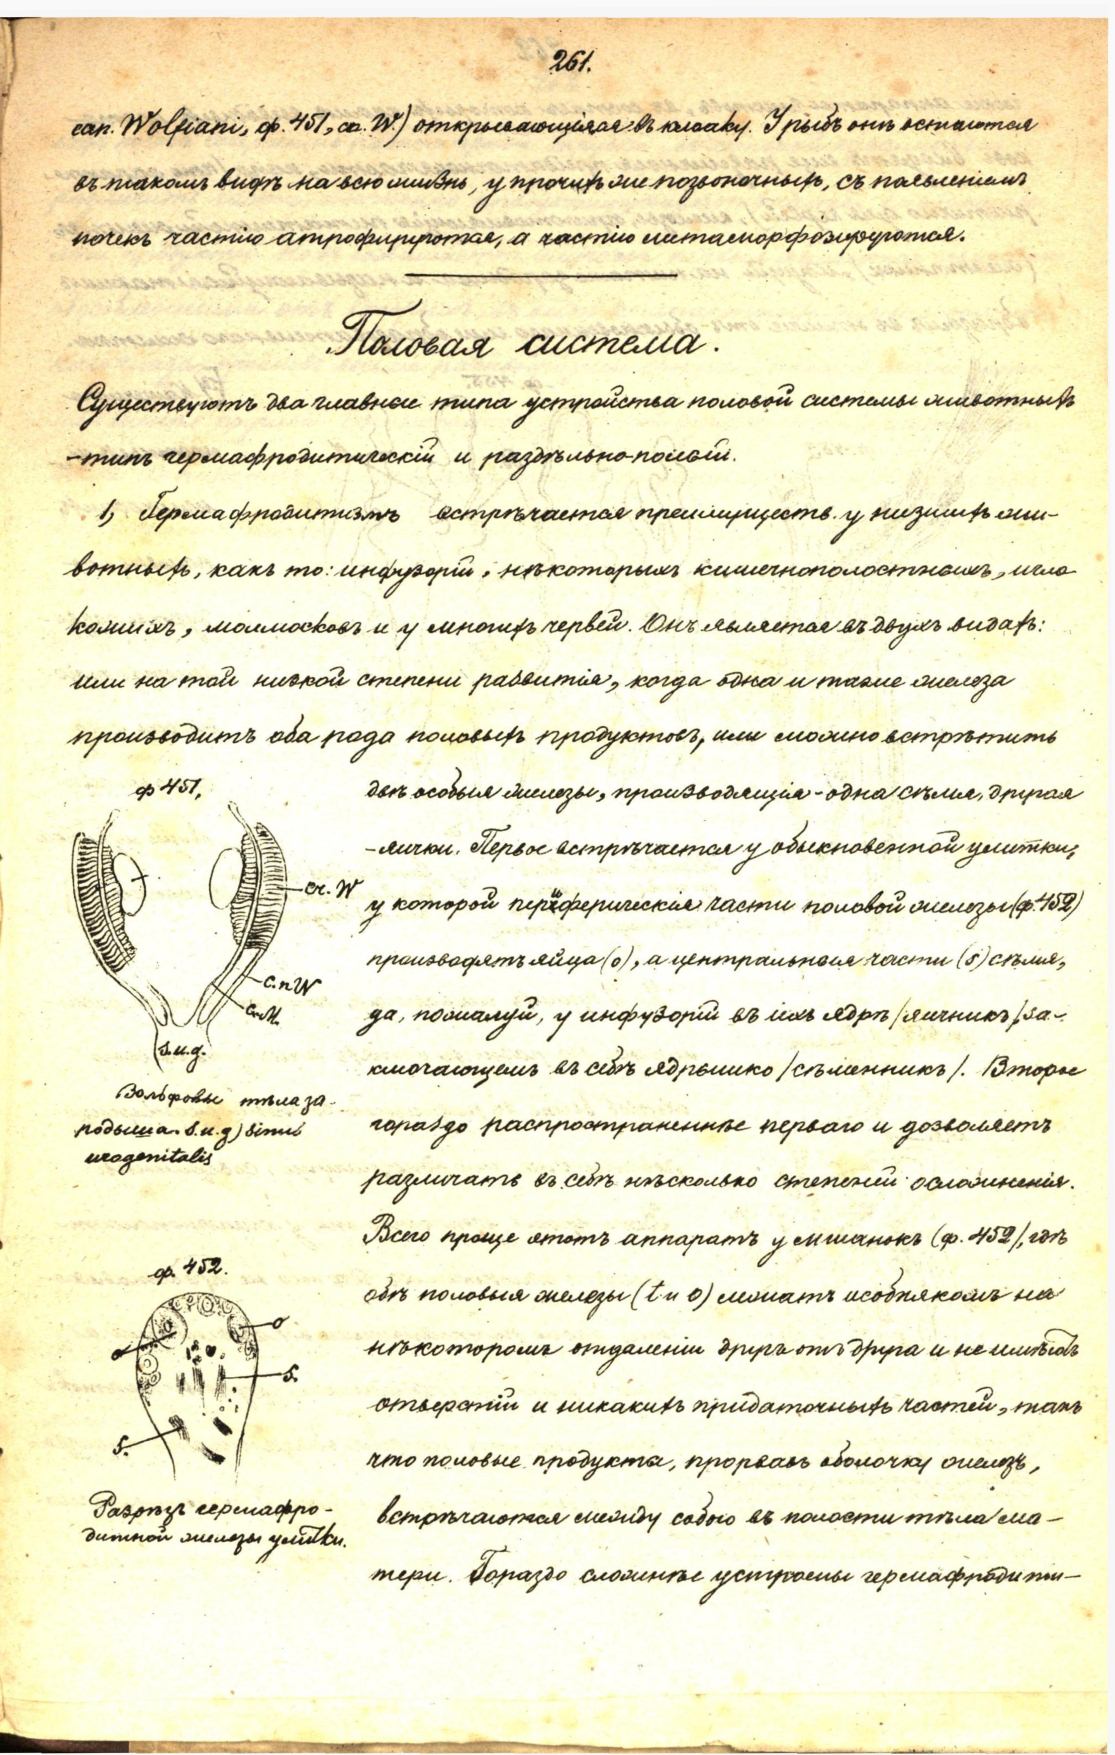 261.
can. Wolfiani, ф. 451, ca. W.) открывающіяся въ клоаку. У рыбъ онѣ остаются
въ такомъ видѣ на всю жизнь, у прочихъ же позвоночныхъ, съ появленіемъ
почекъ частію атрофируются, а частію метаморфозируются.
Половая система.
Существуютъ два главные типа устройства половой системы животныхъ
– типъ гермафродитическій и раздѣльно-полый.
1, Гермафродитизмъ встрѣчается преимуществ. у низшихъ жи-
вотныхъ, какъ то: инфузорій, нѣкоторыхъ кишечнополостныхъ, игло-
кожихъ, моллюсковъ и у многихъ червей. Онъ является въ двухъ видахъ:
или на той низкой степени развитія, когда одна и таже железа
производитъ оба рода половыхъ продуктовъ, или можно встрѣтить
двѣ особыя железы, производящія - одна сѣмя, другая
– яички. Первое встрѣчается у обыкновенной улитки,
у которой периферическія части половой железы (ф. 452)
производятъ яйца (о), а центральныя части (s) сѣмя,
да, пожалуй, у инфузорій въ ихъ ядрѣ /яичникъ/, за-
ключающемъ въ себѣ ядрышко /сѣменникъ/. Второе
гораздо распространеннѣе перваго и дозволяетъ
различать въ себѣ нѣсколько степеней осложненія.
Всего проще этотъ аппаратъ у мшанокъ (ф. 452/, гдѣ
обѣ половыя железы (t и о) лежатъ особнякомъ на
нѣкоторомъ отдаленіи другъ отъ друга и не имѣютъ
отверстій и никакихъ придаточныхъ частей, такъ
что половые продукта, прорвавъ оболочку железъ,
встрѣчаются между собою въ полости тѣла ма-
тери. Гораздо сложнѣе устроены гермафродити-
ф 451,
cr. W
c.n W
c.M.
s.u.g.
Вольфовы тѣла за-
родыша. s.u.g) sinus
urogenitalis
ф. 452.
о
о
s.
s.
Разрѣзъ гермафро-
дитной железы улитки.